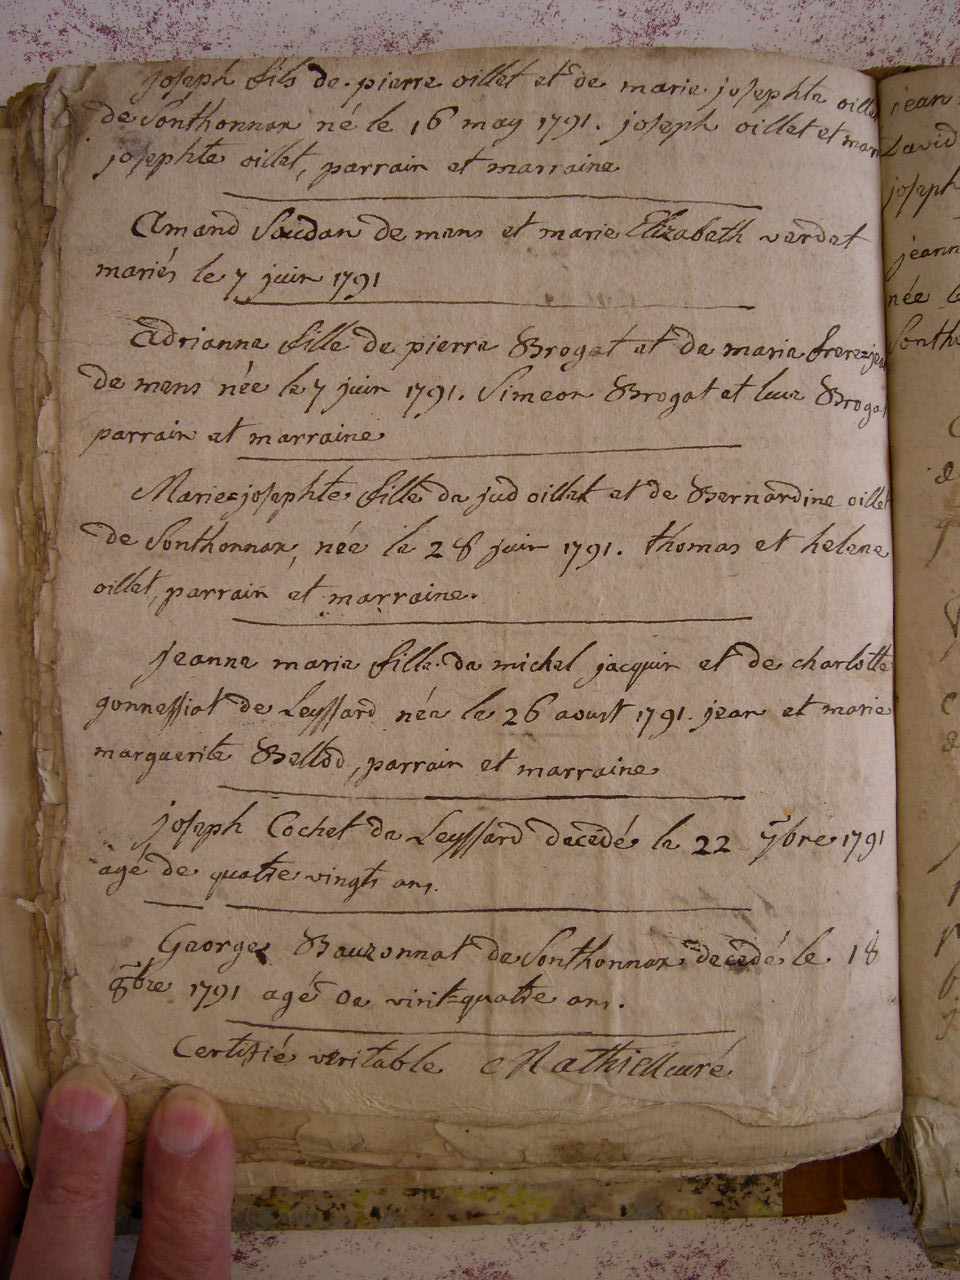 joseph fils de pierre oillet et de marie josephte oillet
de Sonthonnax né le 16 may 1791. joseph oillet et marie
josephte oillet, parrain et marraine
Amand Soudan de mens et marie Elizabeth verdet
mariés le 7 juin 1791
Adrianne fille de pierre Brogat et de marie frere=jean
de mens née le 7 juin 1791. Simeon Brogat et luce Brogat
parrain et marraine
Marie=josephte fille de jud oillet et de Bernardine oillet
de Sonthonnax, née le 28 juin 1791. thomas et helene
oillet, parrain et marraine.
jeanne marie fille de michel jacquin et de charlotte
gonnessiat de Leyssard née le 26 aoust 1791. jean et marie
marguerite Bellod, parrain et marraine
joseph Cochet de Leyssard decedé le 22 7bre 1791
agé de quatre vingts ans.
George Bauzonnat de Sonthonnax decedé le 18
8bre 1791 agé de vint=quatre ans.
Certifié veritable Mathieu curé
jean
David
joseph
jeann
née le
Sontho